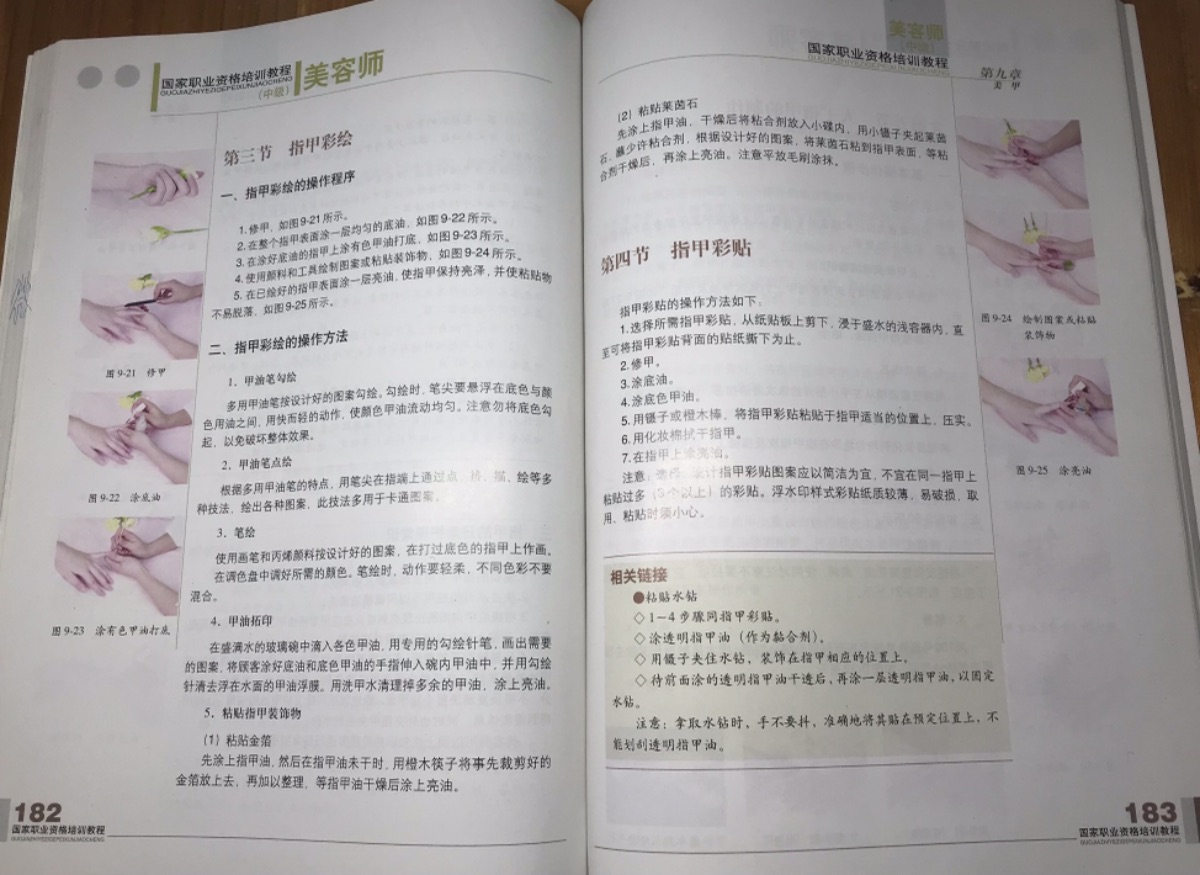 国家职业资格培训教程
GUOJIAZHIYEZIGEPEIXUNJIAOCHENG
（中级）
美容师
第三节 指甲彩绘
一、指甲彩绘的操作程序
1.修甲，如图9-21所示。
2.在整个指甲表面涂一层均匀的底油，如图9-22所示。
3.在涂好底油的指甲上涂有色甲油打底，如图9-23所示。
4.使用颜料和工具绘制图案或粘贴装饰物，如图9-24所示。
5.在已绘好的指甲表面涂一层亮油，使指甲保持亮泽，并使粘贴物
不易脱落，如图9-25所示。
二、指甲彩绘的操作方法
1．甲油笔勾绘
多用甲油笔按设计好的图案勾绘。勾绘时，笔尖要悬浮在底色与颜
色用油之间，用快而轻的动作，使颜色甲油流动均匀。注意勿将底色勾
起，以免破坏整体效果。
2．甲油笔点绘
根据多用甲油笔的特点，用笔尖在指端上通过点、挤、描、绘等多
种技法，绘出各种图案，此技法多用于卡通图案。
3．笔绘
使用画笔和丙烯颜料按设计好的图案，在打过底色的指甲上作画。
在调色盘中调好所需的颜色。笔绘时，动作要轻柔，不同色彩不要
混合。
4．甲油拓印
在盛滴水的玻璃碗中滴入各色甲油，用专用的勾绘针笔，画出需要
的图案，将顾客涂好底油和底色甲油的手指伸入碗内甲油中，并用勾绘
针清去浮在水面的甲油浮膜。用洗甲水清理掉多余的甲油，涂上亮油。
5．粘贴指甲装饰物
（1）粘贴金箔
先涂上指甲油，然后在指甲油未干时，用橙木筷子将事先裁剪好的
金箔放上去，再加以整理，等指甲油干燥后涂上亮油。
图9-21 修甲
图9-22 涂底油
图9-23 涂有色甲油打底
182
国家职业资格培训教程
GUOJIAZHIYEZIGEPEIXUNJIAOCHENG
美容师
（中级）
国家职业资格培训教程
GUOJIAZHIYEZIGEPEIXUNJIAOCHENG
第九章
美 甲
（2）粘贴莱茵石
先涂上指甲油，干燥后将粘合剂放入小碟内，用小镊子夹起莱茵
石，蘸少许粘合剂，根据设计好的图案，将莱茵石粘到指甲表面，等粘
合剂干燥后，再涂上亮油。注意平放毛刷涂抹。
第四节 指甲彩贴
指甲彩贴的操作方法如下：
1.选择所需指甲彩贴，从纸贴板上剪下，浸于盛水的浅容器内，直
至可将指甲彩贴背面的贴纸撕下为止。
2.修甲。
3.涂底油。
4.涂底色甲油。
5.用镊子或橙木棒，将指甲彩贴粘贴于指甲适当的位置上，压实。
6.用化妆棉拭干指甲。
7.在指甲上涂亮油。
注意：选择、设计指甲彩贴图案应以简洁为宜，不宜在同一指甲上
粘贴过多（3个以上）的彩贴。浮水印样式彩贴纸质较薄，易破损，取
用、粘贴时须小心。
相关链接
●粘贴水钻
◇1－4步骤同指甲彩贴。
◇涂透明指甲油（作为黏合剂）。
◇用镊子夹住水钻，装饰在指甲相应的位置上。
◇待前面涂的透明指甲油干透后，再涂一层透明指甲油，以固定
水钻。
注意：拿取水钻时，手不要抖，准确地将其贴在预定位置上，不
能划刮透明指甲油。
图9-24 绘制图案或粘贴
装饰物
图9-25 涂亮油
183
国家职业资格培训教程
GUOJIAZHIYEZIGEPEIXUNJIAOCHENG